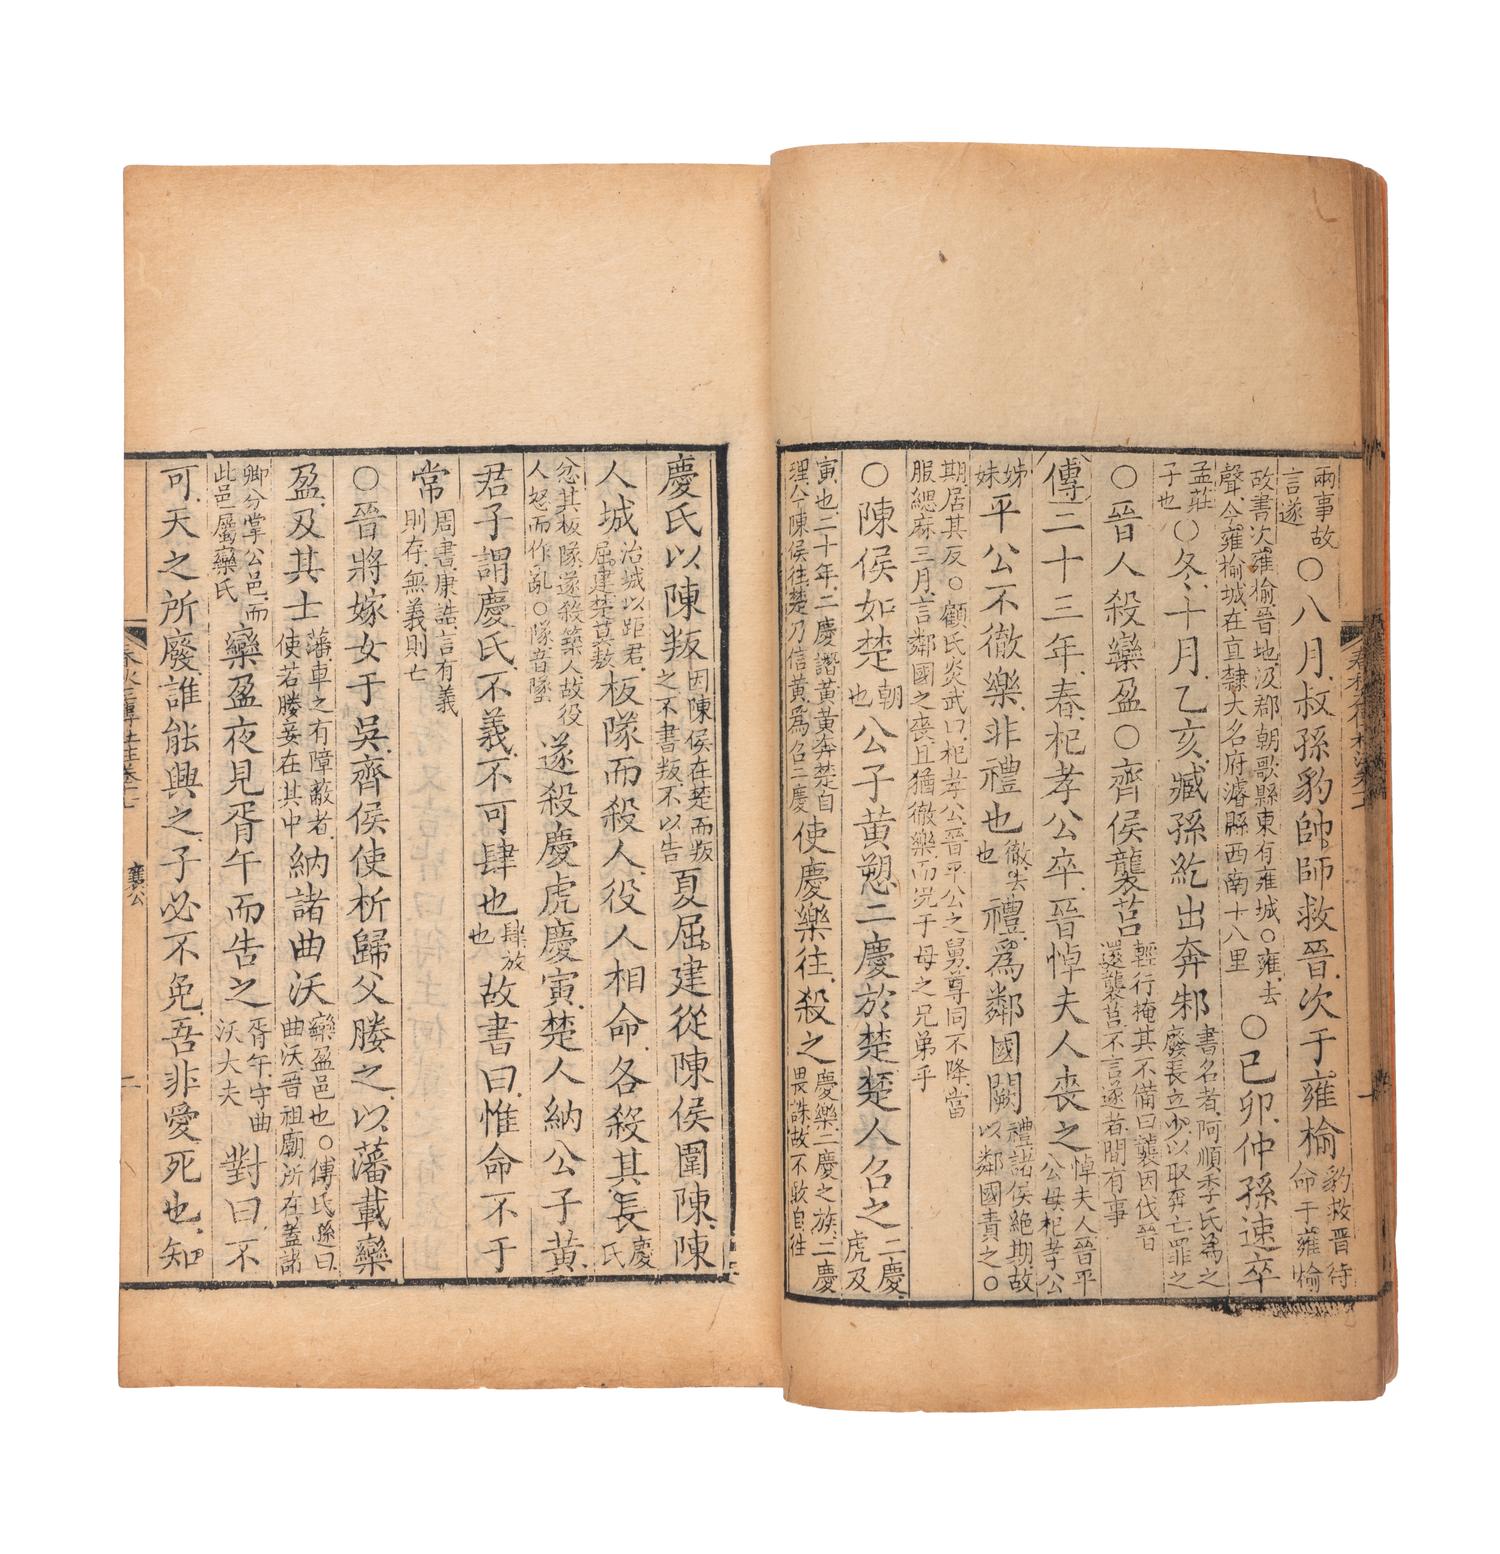 兩事故言遂○八月叔孫豹帥師救晉次于雍榆豹救晉待命于雍榆
故書次雍榆晉地汲郡朝歌縣東有雍城○雍去聲今雍榆城在直隸大名府濬縣西南十八里○己卯仲孫速卒
孟莊子也○冬十月乙亥臧孫紇出奔邾書名者阿順季氏為之廢長立少以取奔亡罪之
○晉人殺欒盈○齊侯襲莒輕行掩其不備曰襲因伐晉還襲莒不言遂者間有事
傳二十三年春杞孝公卒晉悼夫人喪之悼夫人晉平公母杞孝公
姊妹平公不徹樂非禮也徹去也禮為鄰國闕禮諸侯絕期故以鄰國責之○
期居其反○顧氏炎武曰杞孝公晉平公之舅尊同不降當服緦麻三月言鄰國之喪且猶徹樂而況于母之兄弟乎
○陳侯如楚朝也公子黃愬二慶於楚楚人召之二慶虎及
寅也二十年二慶譖黃黃奔楚自理今陳侯往楚乃信黃為召二慶使慶樂往殺之慶樂二慶之族二慶畏誅故不敢自往
慶氏以陳叛因陳侯在楚而叛之不書叛不以告夏屈建從陳侯圍陳陳
人城治城以距君屈建楚莫敖板隊而殺人役人相命各殺其長慶氏
忿其板隊遂殺築人故役人怒而作亂○隊音墜遂殺慶虎慶寅楚人納公子黃
君子謂慶氏不義不可肆也肆放也故書曰惟命不于
常周書康誥言有義則存無義則亡
○晉將嫁女于吳齊侯使析歸父媵之以藩載欒
盈及其士藩車之有障蔽者使若媵妾在其中納諸曲沃欒盈邑也○傅氏遜曰曲沃晉祖廟所在蓋諸
卿分掌公邑而此邑屬欒氏欒盈夜見胥午而告之胥午守曲沃大夫對曰不
可天之所廢誰能興之子必不免吾非愛死也知
春秋三傳 卷十七
襄公